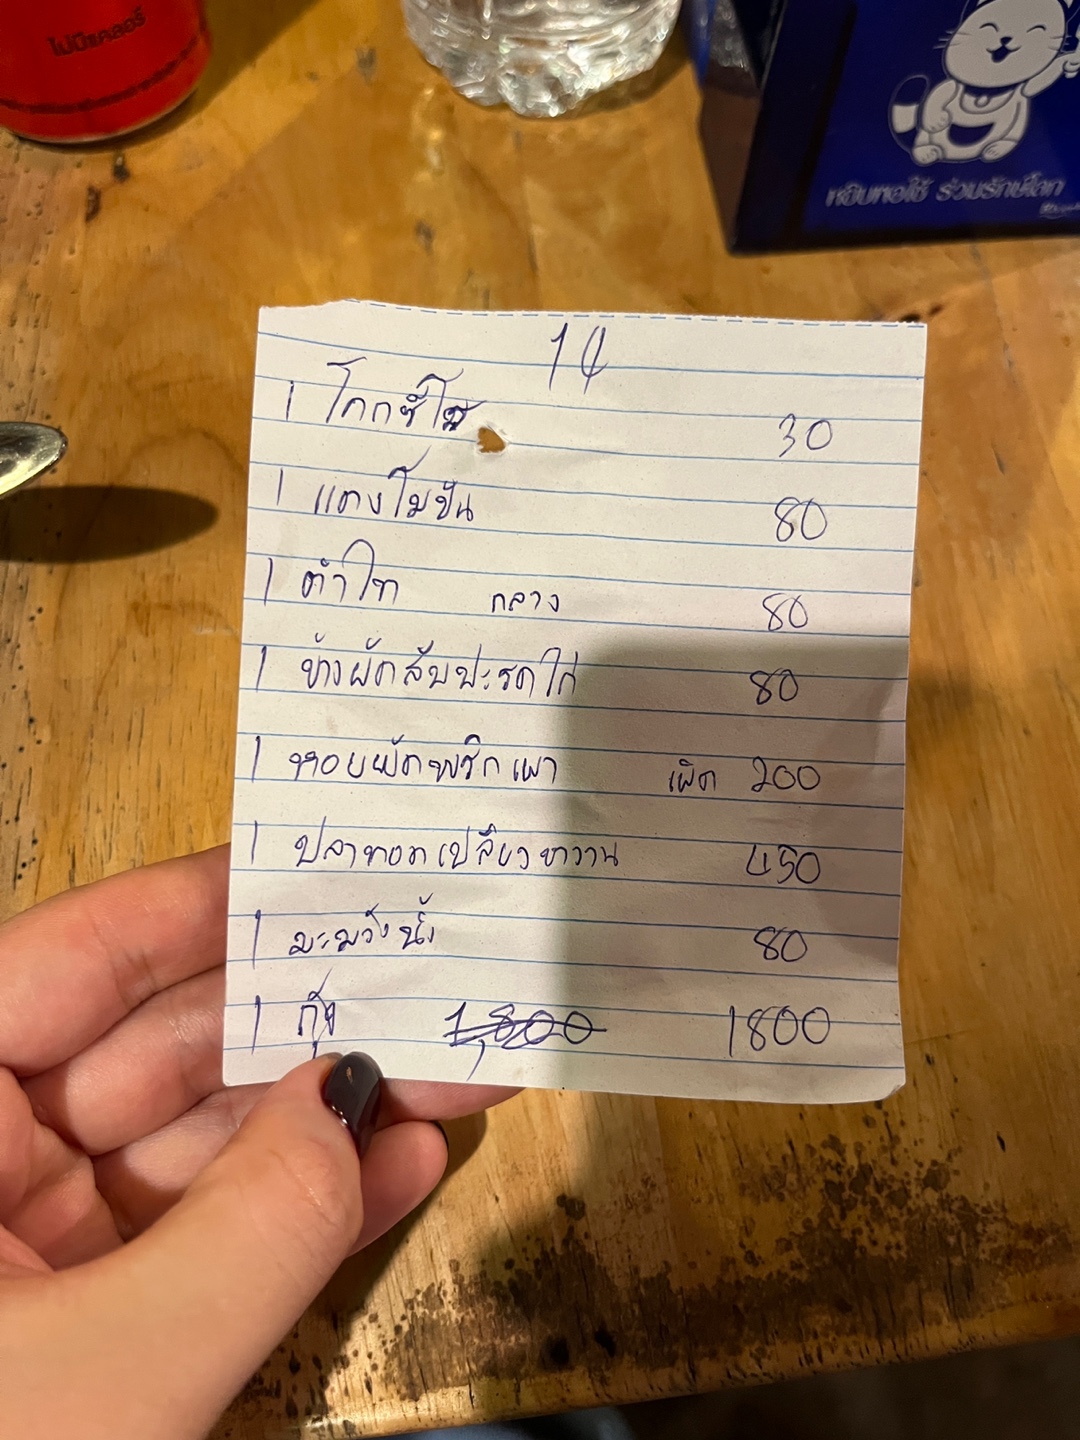 ไม่มีแคลอรี่
หยิบพอใช้ ร่วมรักษ์โลก
14
1 โคกซีโร่ 30
1 แตงโมปั่น 80
1 ตำไท กลาง 80
1 ข้าวผัดสับปะรดไก่ 80
1 หอยผัดพริกเผา เผ็ด 200
1 ปลาทอดเปลี้ยวหวาน 450
1 มะม่วงน้ำ 80
1 กุ้ง 1,800 1800